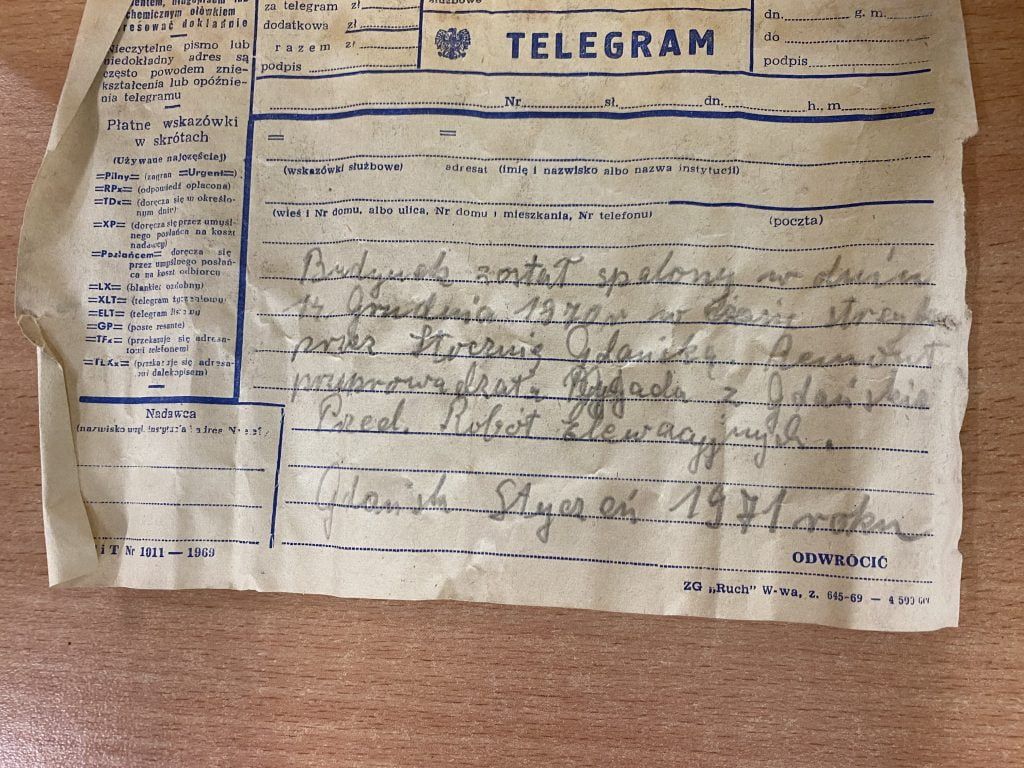 chemicznym ołówkiem
resować dokładnie
Nieczytelne pismo lub
niedokładny adres są
często powodem znie-
kształcenia lub opóźnie-
nia telegramu
Płatne wskazówki
w skrótach
(Używane najczęściej)
=Pilny= (zagran =Urgent=)
=RPx= (odpowiedź opłacona)
=TDx= (doręcza się w określo-
nym dniu)
=XP= (doręcza się przez umyśl-
nego posłańca na koszt
nadawcy)
=Posłańcem= doręcza się
przez umyślnego posłań-
ca na koszt odbiorcy
=LX= (blankiet ozdobny)
=XLT= (telegram życzeniowy)
=ELT= (telegram listowy)
=GP= (poste restante)
=TFx= (przekazuje się adresa-
towi telefonem)
=TLXx= (przekazuje się adresa-
towi dalekopisem)
Nadawca
(nazwisko wzgl. instytucja i adres
iT Nr 1011 — 1969
za telegram zł
dodatkowa zł
razem zł
podpis
służbowe
TELEGRAM
dn. g. m.
do
podpis
Nr sł. dn. h., m
= =
(wskazówki służbowe) adresat (imię i nazwisko albo nazwa instytucji)
(wieś i Nr domu, albo ulica, Nr domu i mieszkania, Nr telefonu) (poczta)
Budynek został spalony w dniu
Grudnia 1970 r w czasie
przez Stocznię Gdańską. Remont
przyprowadzała Brygada z Gdańskie
Przed. Robót Elewacyjnych.
Gdańsk Styczeń 1971 roku
ODWRÓCIĆ
ZG „Ruch" W-wa, z. 645-69 — 4 500